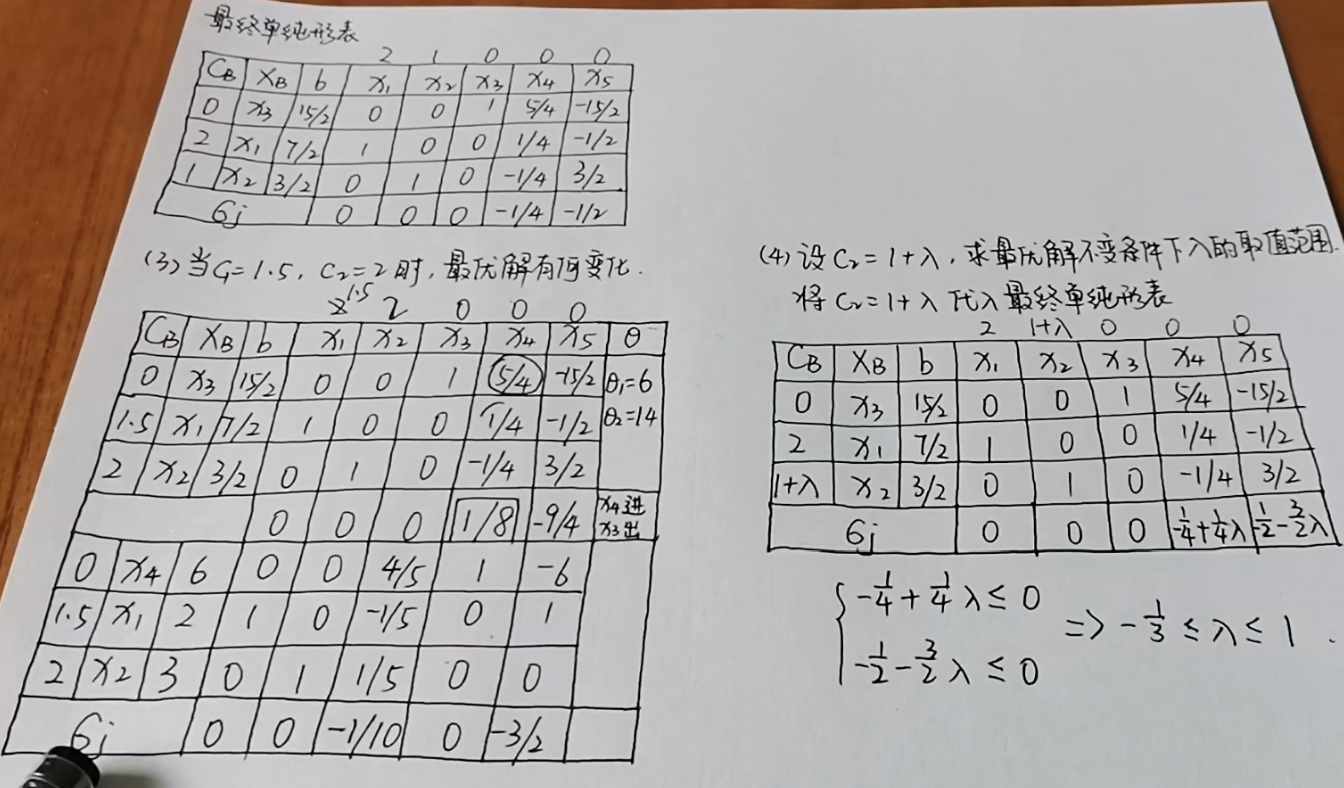 最终单纯形表
2 1 0 0 0
CB XB b x₁ x₂ x₃ x₄ x₅
0 x₃ 15/2 0 0 1 5/4 -15/2
2 x₁ 7/2 1 0 0 1/4 -1/2
1 x₂ 3/2 0 1 0 -1/4 3/2
6j 0 0 0 -1/4 -1/2
(3) 当C₁=1.5, C₂=2时, 最优解有何变化.
1.5 2 0 0 0
CB XB b x₁ x₂ x₃ x₄ x₅ θ
0 x₃ 15/2 0 0 1 5/4 -15/2 θ₁=6
1.5 x₁ 7/2 1 0 0 1/4 -1/2 θ₂=14
2 x₂ 3/2 0 1 0 -1/4 3/2
0 0 0 1/8 -9/4 x₄进
x₃出
0 x₄ 6 0 0 4/5 1 -6
1.5 x₁ 2 1 0 -1/5 0 1
2 x₂ 3 0 1 1/5 0 0
6j 0 0 -1/10 0 -3/2
(4) 设C₂=1+λ, 求最优解不变条件下λ的取值范围.
将C₂=1+λ代入最终单纯形表
2 1+λ 0 0 0
CB XB b x₁ x₂ x₃ x₄ x₅
0 x₃ 15/2 0 0 1 5/4 -15/2
2 x₁ 7/2 1 0 0 1/4 -1/2
1+λ x₂ 3/2 0 1 0 -1/4 3/2
6j 0 0 0 -1/4+1/4λ -1/2-3/2λ
-1/4+1/4λ≤0
-1/2-3/2λ≤0
=> -1/3≤λ≤1.